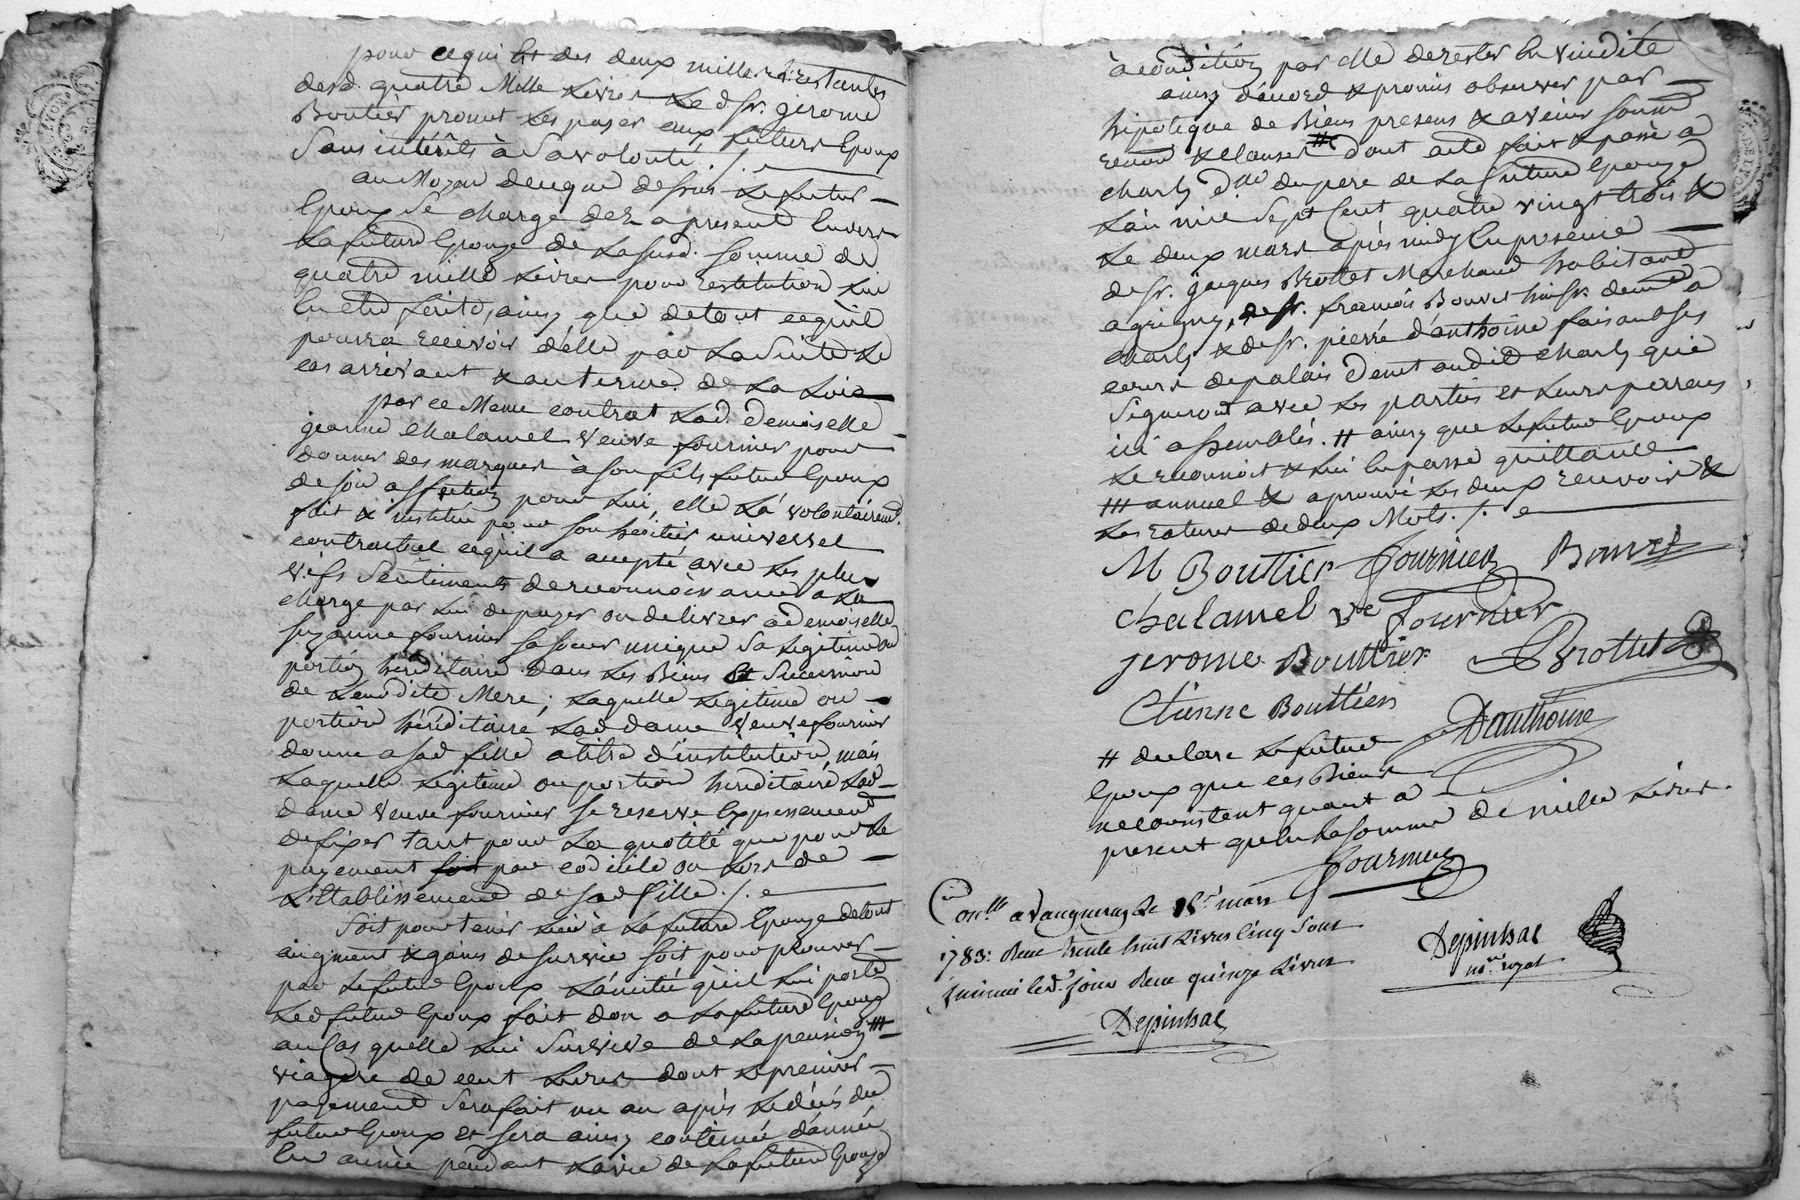 pour ce qui est des deux mille # restantes
desd. quatre Mille Livres Led. sr. gerome
Boutier promet Les payer aux futurs Epoux
Sans intérêts à Sa volonté ./.
au Moyen de ce que dessus Le futur
Epoux Se charge dez a present Envers
La future Epouze de La susd. somme de
quatre mille Livres pour restitution lui
En etre faite, ainsy que de tout ce qu'il
pourra recevoir d'elle par La Suite Le
cas arrivant & au terme de La Loix
par ce Meme contrat Lad. Demoiselle
jeanne chalamel veuve fournier pour
donner des marques à son fils futur Epoux
de son affection pour lui, elle L'a volontairemt.
fait & institué pour son héritier universel
contractuel ce qu'il a accepté avec Les plus
vifs Sentiments de reconnoissance a La
charge par lui de payer ou delivrer a demoiselle
suzanne fournier sa soeur unique Sa Legitime ou
portion héréditaire dans Les Biens Et Succession
de Leur dite Mere; Laquelle Legitime ou
portion héréditaire Lad. dame Veuve fournier
donne a sad. fille a titre d'institution, mais
Laquelle Legitime ou portion héréditaire Lad.
dame veuve fournier se reserve Expressement
de fixer tant pour La quotité que pour Le
payement soit par codicile ou Lors de
L'Etablissement de sad. fille ./.
Soit pour tenir Lieu à La future Epouze de tout
augment & gains de survie soit pour prouver
par Le futur Epoux L'amitié qu'il lui porte
Led. futur Epoux fait don a La future Epouze
au Cas quelle lui Survive de La pension ###
viagere de cent Livres dont Le premier
payement Sera fait un an après Le décès du
futur Epoux et sera ainsy continué d'année
En année pendant La vie de La future Epouze
à condition par elle de rester En viduité
ainsy d'accord & promis observer par
hipoteque de Biens presens & a venir soumis
renon & clauses # Dont acte fait & passé a
charly de. du pere de La future Epouze
L'an mil Sept Cent quatre vingt trois &
Le deux mars après midy En presence
de sr. jacques Brottet Marchand habitant
a grigny, de sr. francois Bouvet huissr. demt. a
charly & de sr. pierre d'anthoine faisant Ses
cours de palais demt audit charly qui
Signeront avec Les parties et Leurs parens
ici assemblés. # ainsy que Le futur Epoux
Le reconnoit & lui En passe quittance
### annuel & aprouvé Les deux renvois &
Les ratures de deux Mots ./.
M Bouttier fournier Bouvet
chalamel ve fournier
jerome Bouttier Brottet
Etienne Bouttier
Danthoine
# declare Le futur
Epoux que ces Biens
ne consistent quant a
present qu'En La somme de mille Livres
fournier
Conllé a Vaugneray Le 15e mars
1783: Reçu trente huit Livres Cinq Sous
Insinué led. jour Reçu quinze Livres
Depinhac
Depinhac
nore royal